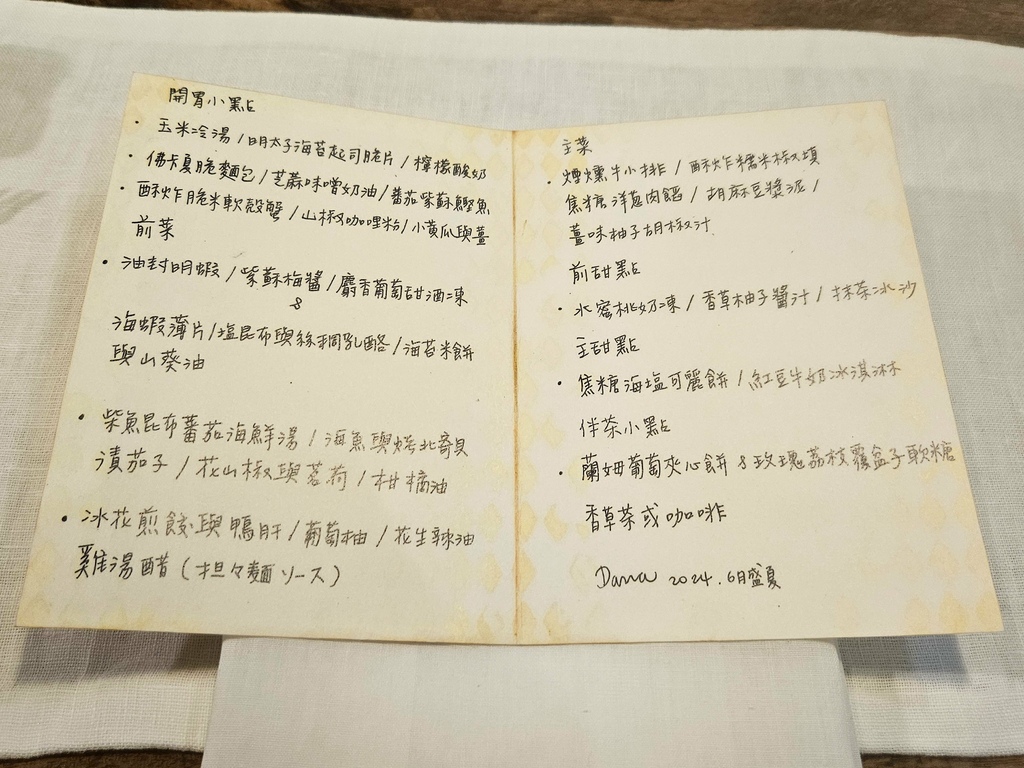 開胃小點
· 玉米冷湯 / 明太子海苔起司脆片 / 檸檬酸奶
· 佛卡夏脆麵包 / 芝蔴味噌奶油 / 蕃茄紫蘇鰹魚
· 酥炸脆米軟殼蟹 / 山椒咖哩粉 / 小黃瓜與薑
前菜
· 油封明蝦 / 紫蘇梅醬 / 麝香葡萄甜酒凍
&
海蝦薄片 / 塩昆布與絲綢乳酪 / 海苔米餅
與山葵油
· 柴魚昆布蕃茄海鮮湯 / 海魚與烤北寄貝
漬茄子 / 花山椒與茗荷 / 柑橘油
· 冰花煎餃與鴨肝 / 葡萄柚 / 花生辣油
雞湯醋 (担々麵ソース)
主菜
· 煙燻牛小排 / 酥炸糯米椒鑲
焦糖洋蔥肉餡 / 胡麻豆漿泥 /
薑味柚子胡椒汁
前甜點
· 水蜜桃奶凍 / 香草柚子醬汁 / 抹茶冰沙
主甜點
· 焦糖海塩可麗餅 / 紅豆牛奶冰淇淋
伴茶小點
· 蘭姆葡萄夾心餅 & 玫瑰荔枝覆盆子軟糖
香草茶或咖啡
Dana 2024. 6月盛夏